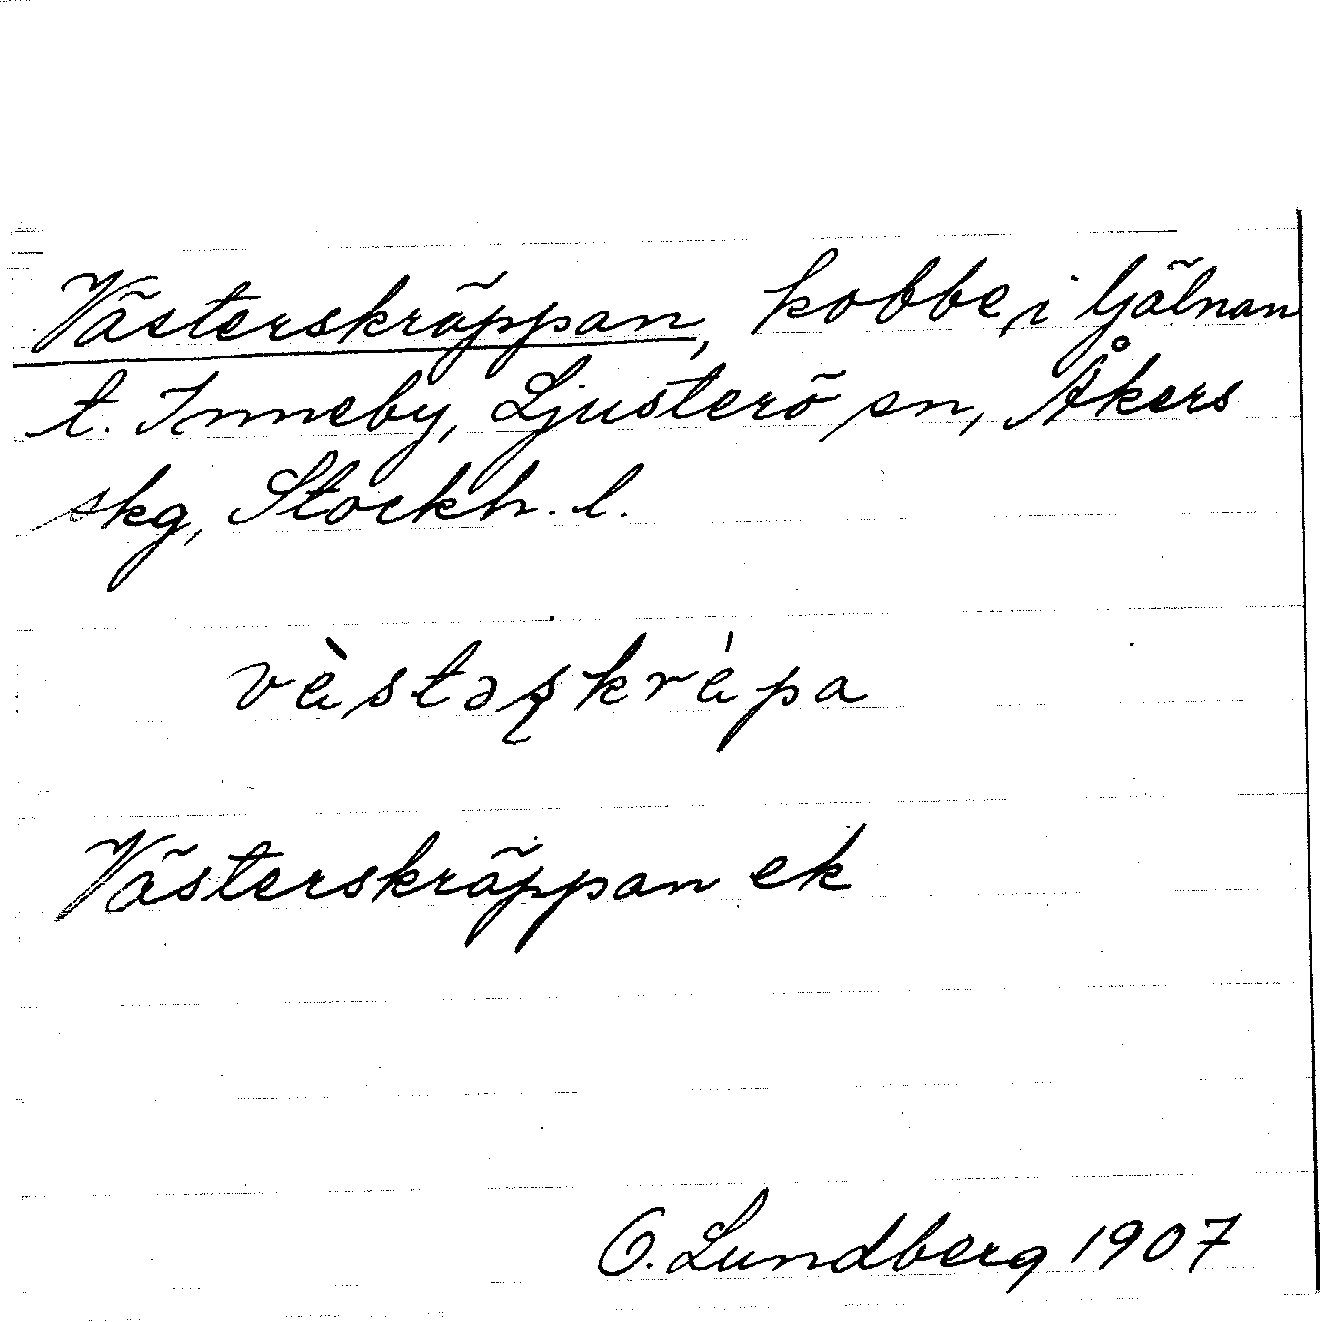 Västerskräppan, kobbe, i ljälnan
t. Inneby, Ljusterö sn, Åkers
skg, Stockh. l.
Västerskräppan ek
O. Lundberg 1907